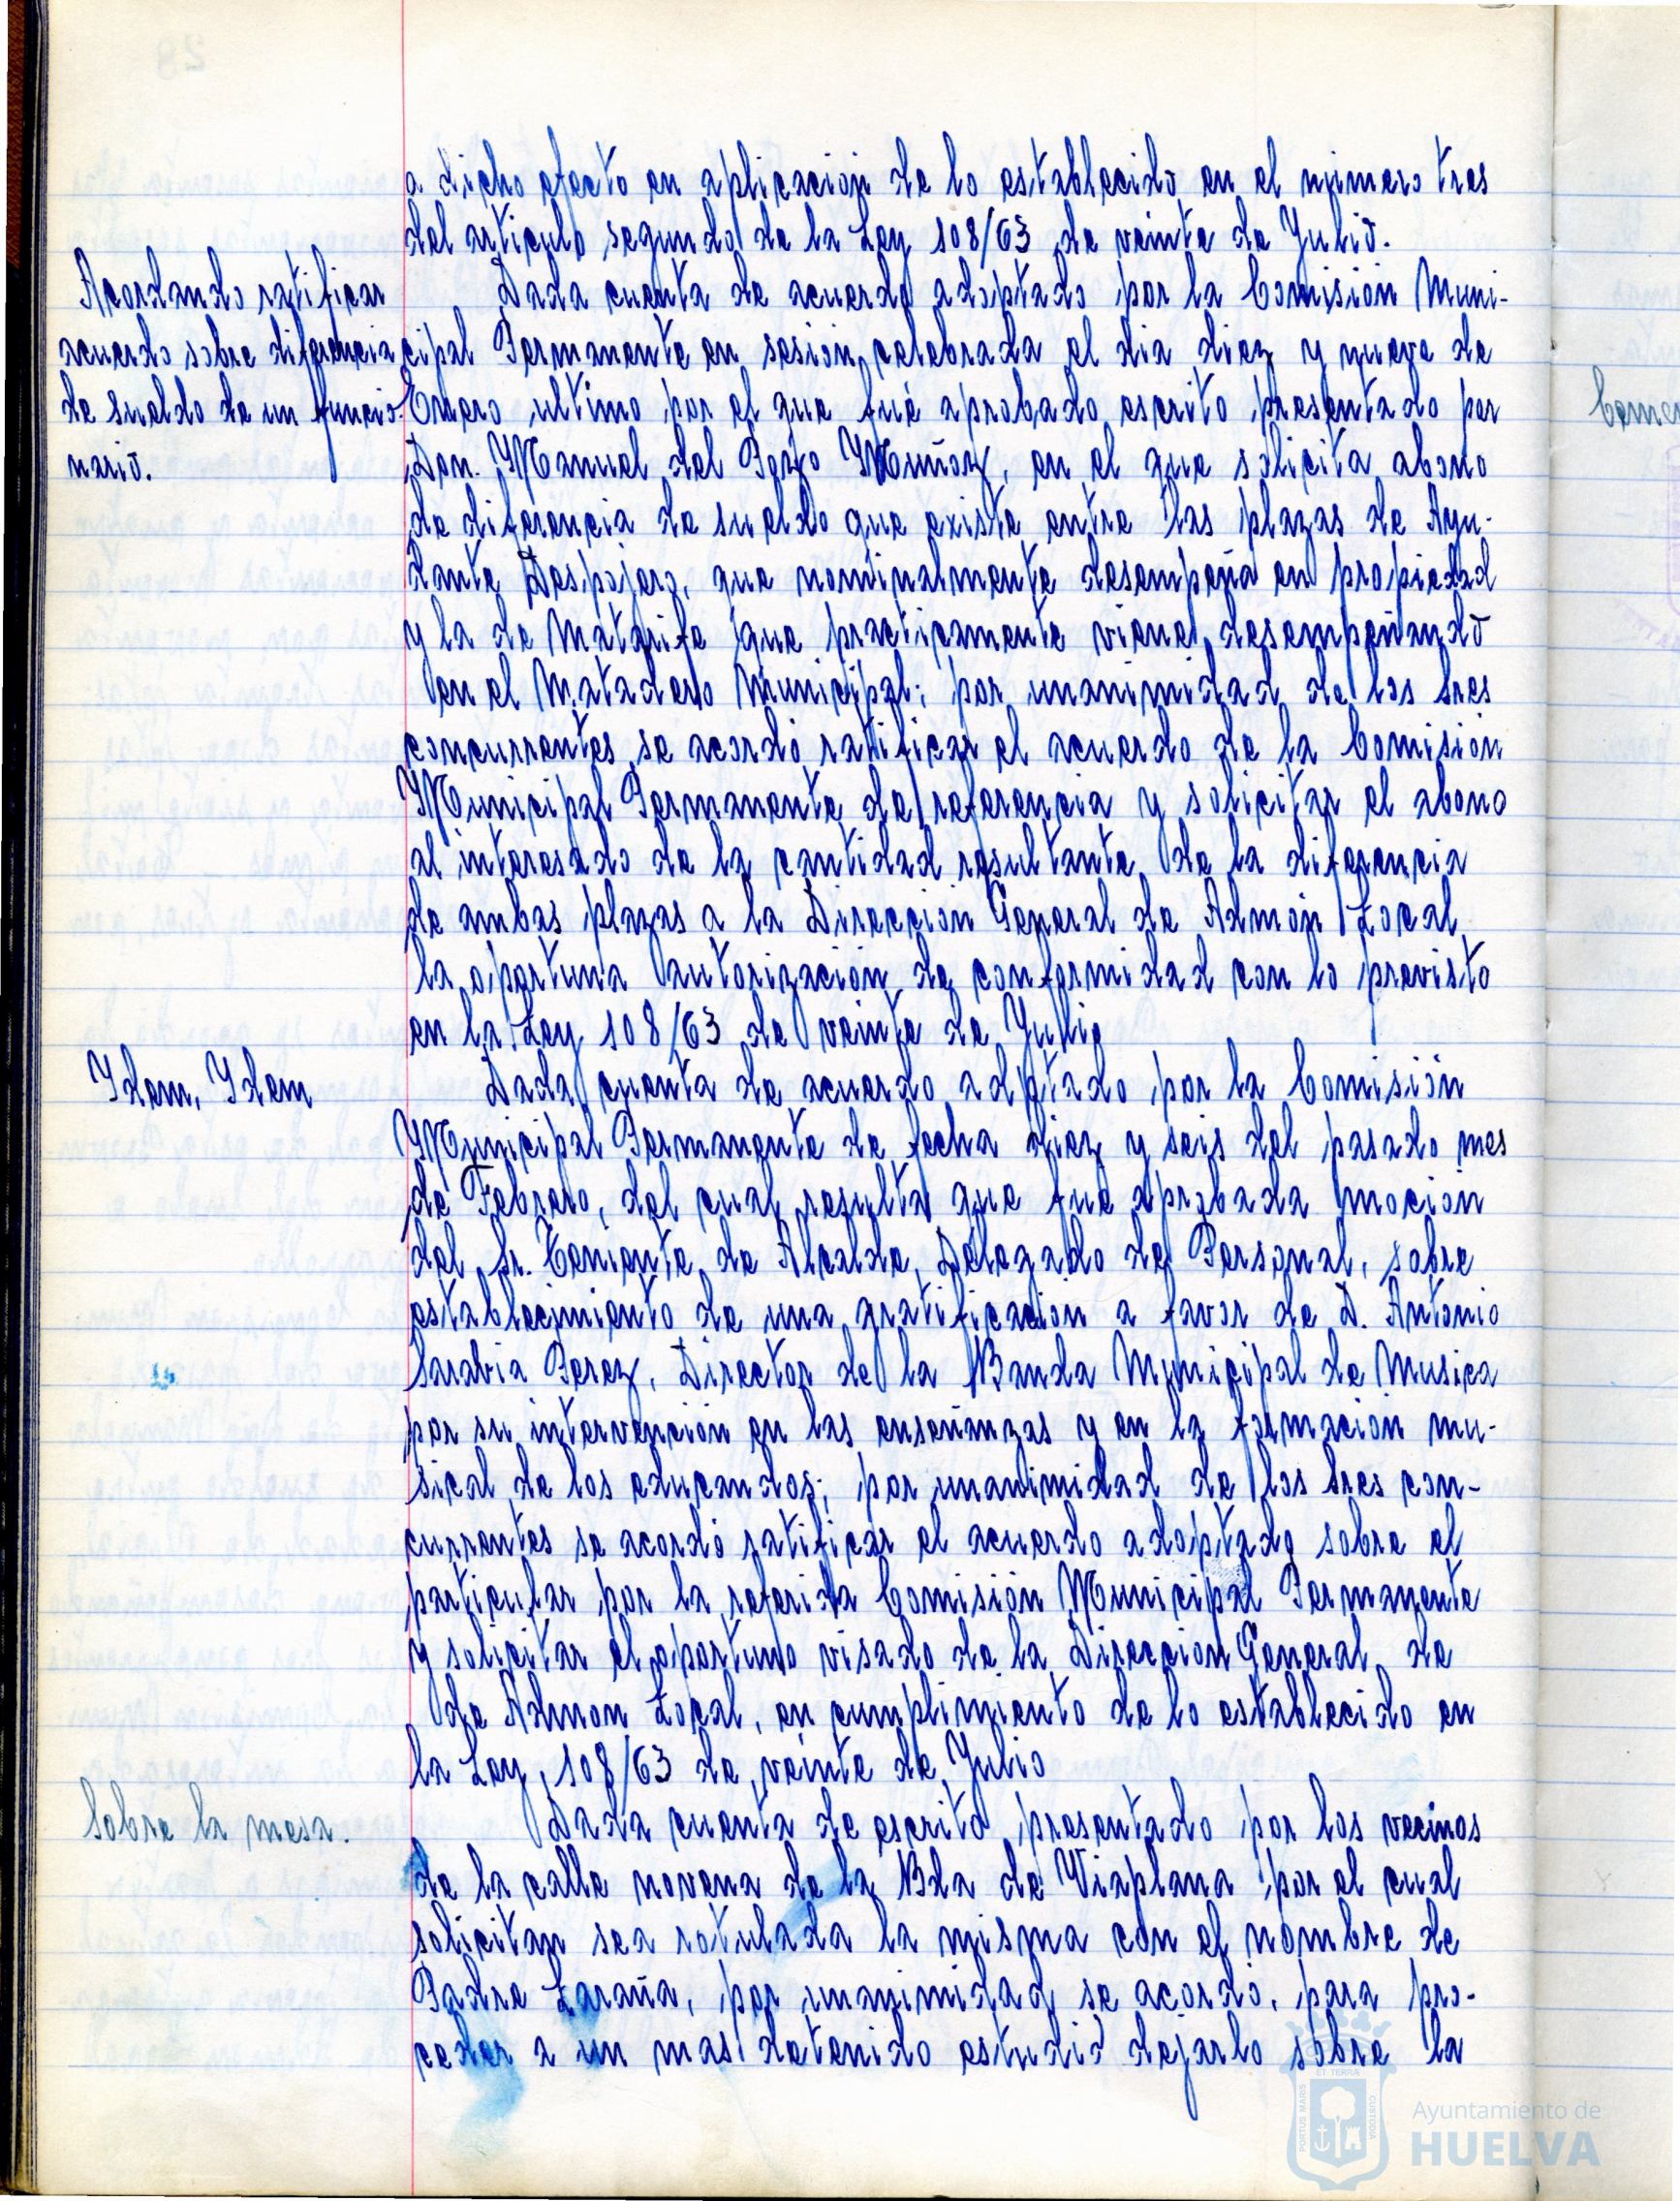 a dicho efecto en aplicación de lo establecido en el número tres
del articulo segundo de la Ley 108/63 de veinte de Julio.
Acordando ratificar
acuerdo sobre diferencia
de sueldo de un funcio-
nario.
Dada cuenta de acuerdo adoptado por la Comisión Muni-
cipal Permanente en sesión celebrada el dia diez y nueve de
Enero ultimo por el que fué aprobado escrito presentado por
Don. Manuel del Pozo Muñoz, en el que solicita abono
de diferencia de sueldo que existe entre las plazas de Ayu-
dante Despojero, que nominalmente desempeña en propiedad
y la de Matarife que practicamente viene desempeñando
en el Matadero Municipal; por unanimidad de los Sres
concurrentes se acordó ratificar el acuerdo de la Comisión
Municipal Permanente de referencia y solicitar el abono
al interesado de la cantidad resultante de la diferencia
de ambas plazas a la Dirección General de Admón Local
la oportuna autorización de conformidad con lo previsto
en la Ley 108/63 de veinte de Julio
Idem, Idem
Dada cuenta de acuerdo adoptado por la Comisión
Municipal Permanente de fecha diez y seis del pasado mes
de Febrero, del cual resulta que fue aprobada moción
del Sr. Teniente de Alcalde Delegado de Personal, sobre
establecimiento de una gratificación a favor de D. Antonio
Sarabia Perez, Director de la Banda Municipal de Musica
por su intervención en las enseñanzas y en la formación mu-
sical de los educandos; por unanimidad de los Sres con-
currentes se acordó ratificar el acuerdo adoptado sobre el
particular por la referida Comisión Municipal Permanente
y solicitar el oportuno visado de la Dirección General de
de Admon Local, en cumplimiento de lo establecido en
la Ley 108/63 de veinte de Julio
Sobre la mesa.
Dada cuenta de escrito presentado por los vecinos
de la calle novena de la Bda de Viaplana por el cual
solicitan sea rotulada la misma con el nombre de
Padre Laraña, por unanimidad se acordó, para pro-
ceder a un mas detenido estudio dejarlo sobre la
PORTUS MARIS
ET TERRAE
CUSTODIA
Ayuntamiento de
HUELVA